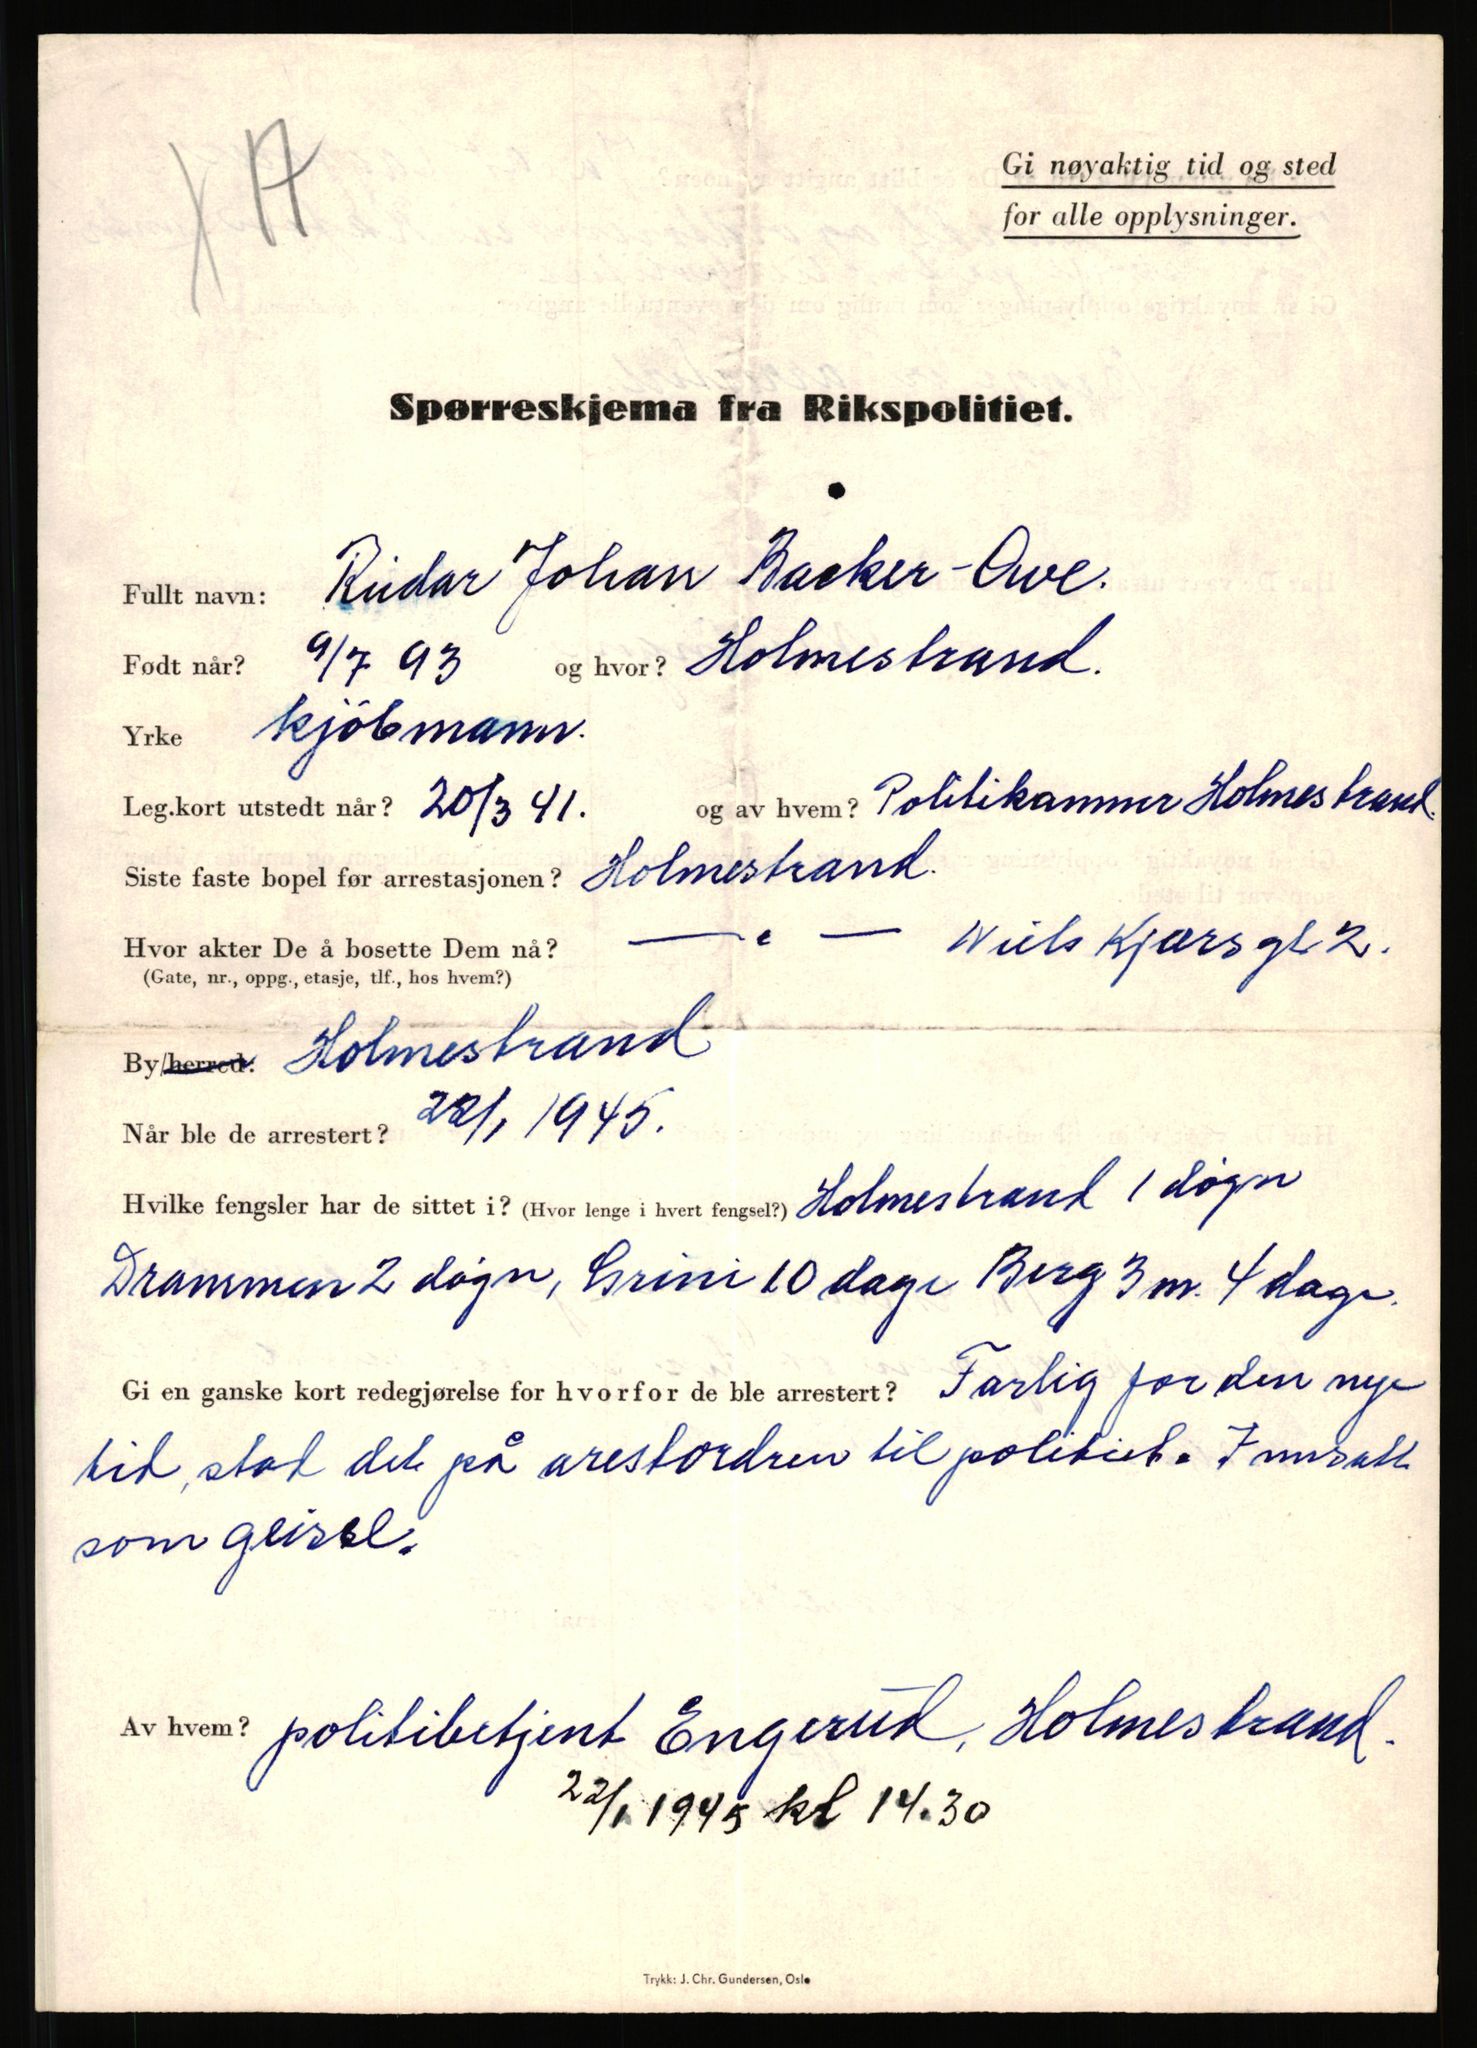 A
Gi nøyaktig tid og sted
for alle opplysninger.
Spørreskjema fra Rikspolitiet.
Fullt navn: Reidar Johan Backer-Owe.
Født når? 9/7 93 og hvor? Holmestrand.
Yrke kjöbmann.
Leg.kort utstedt når? 20/3 41. og av hvem? Politikammer Holmestrand.
Siste faste bopel før arrestasjonen? Holmestrand.
Hvor akter De å bosette Dem nå? — " — Niels Kjærs gt 2.
(Gate, nr., oppg., etasje, tlf., hos hvem?)
By/herred: Holmestrand
Når ble de arrestert? 22/1 1945.
Hvilke fengsler har de sittet i? (Hvor lenge i hvert fengsel?) Holmestrand 1 døgn
Drammen 2 døgn, Grini 10 dage Berg 3 m. 4 dage.
Gi en ganske kort redegjørelse for hvorfor de ble arrestert? Farlig for den nye
tid, stod det på arestordren til politiet. Innsatt
som geisel.
Av hvem? politibetjent Engerud, Holmestrand.
22/1 1945 kl 14.30
Trykk: J. Chr. Gundersen, Oslo